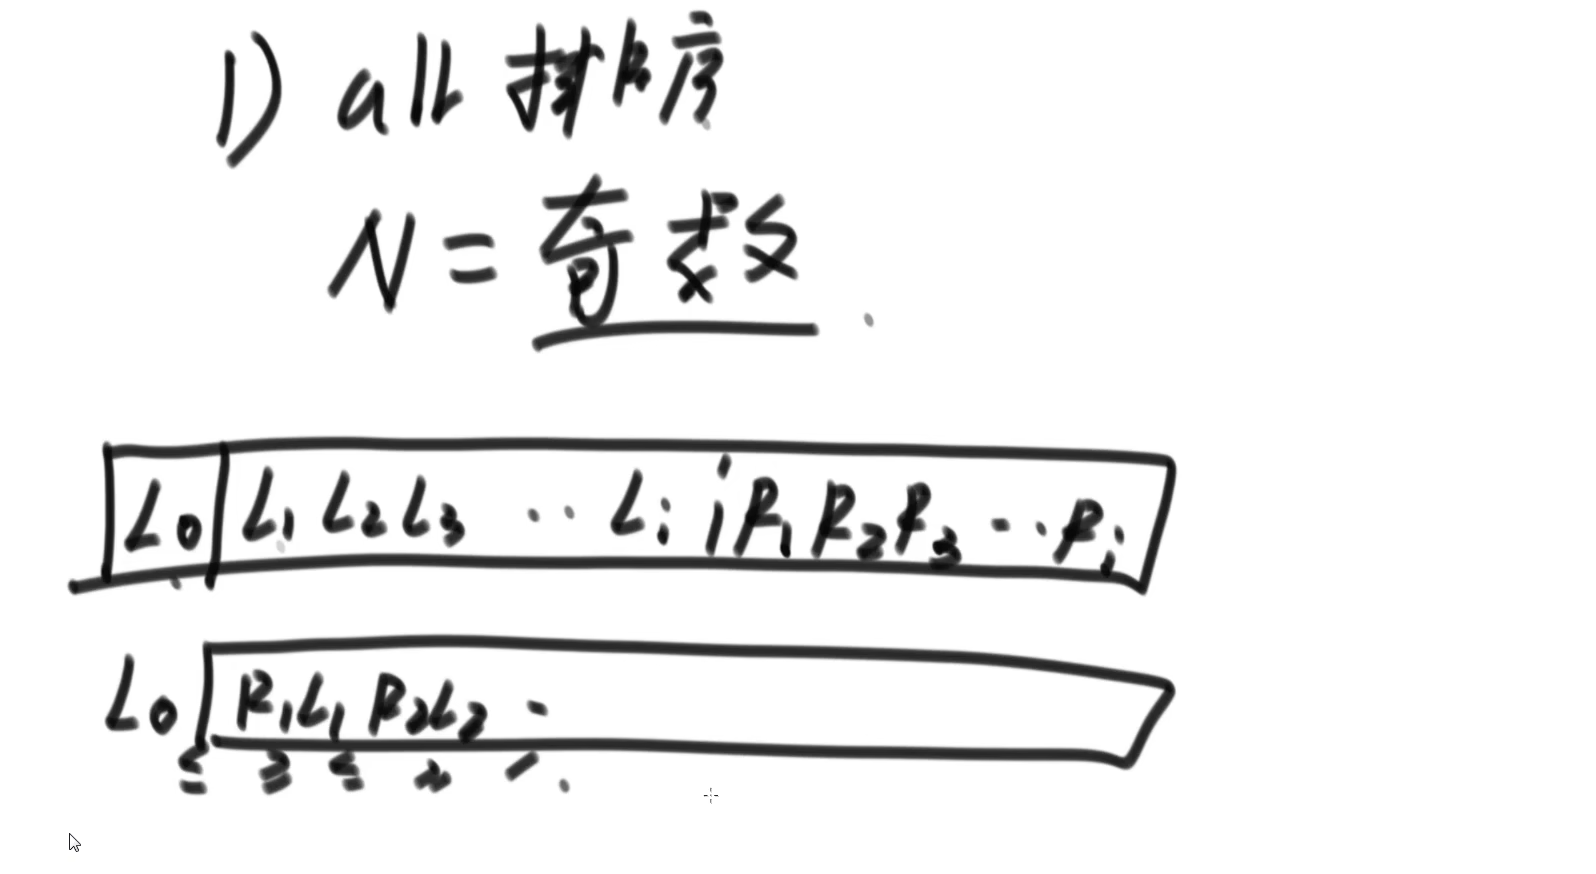 1) all 排序
N = 奇数
L0 L1 L2 L3 .. Li | R1 R2 R3 .. Ri
L0 R1 L1 R2 L2 ..
≤ ≥ ≤ ≥